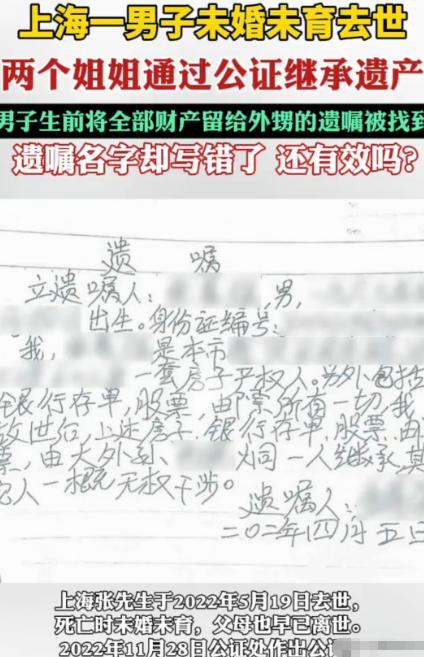 上海一男子未婚未育去世
两个姐姐通过公证继承遗产
男子生前将全部财产留给外甥的遗嘱被找到
遗嘱名字却写错了 还有效吗?
遗 嘱
立遗嘱人: 男,
出生。身份证编号:
我, 是本市
一套房子产权人。另外包括
银行存单,股票,邮票所有一切,我
故世后,上述房子、银行存单、股票、邮
票,由大外孙 烔一人继承,其
它人一概无权干涉。
遗嘱人:
二〇二年四月五日
上海张先生于2022年5月19日去世,
死亡时未婚未育,父母也早已离世。
2022年11月28日公证处作出公证